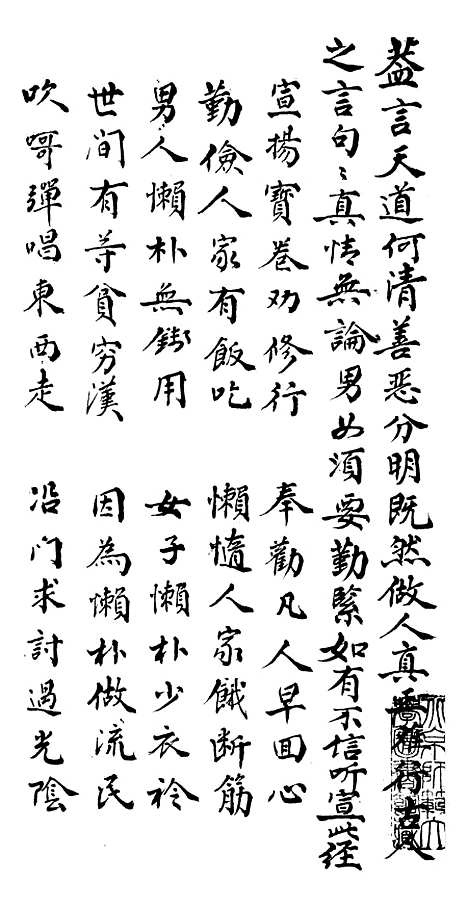 蓋言天道何清善惡分明既然做人真
之言句〻真情無論男女須要勤緊如有不信听宣此经
宣揚寶卷劝修行 奉勸凡人早回心
勤儉人家有飯吃 懶惰人家餓断筋
男人懶朴無錢用 女子懶朴少衣衿
世间有等貧穷漢 因為懶朴做流民
吹呵彈唱東西走 沿门求討過光陰